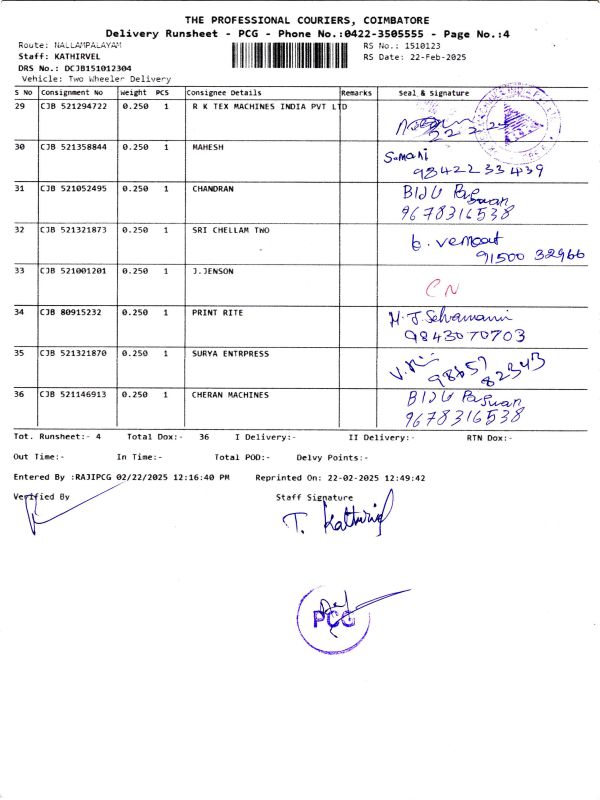 THE PROFESSIONAL COURIERS, COIMBATORE
Delivery Runsheet - PCG - Phone No.:0422-3505555 - Page No.:4
Route: NALLAMPALAYAM
RS No.: 1510123
Staff: KATHIRVEL
RS Date: 22-Feb-2025
DRS No.: DCJB151012304
Vehicle: Two Wheeler Delivery
S NO Consignment No Weight PCS Consignee Details Remarks Seal & Signature
29 CJB 521294722 0.250 1 R K TEX MACHINES INDIA PVT LTD
30 CJB 521358844 0.250 1 MAHESH Sumani
9842233439
31 CJB 521052495 0.250 1 CHANDRAN BIJU Paswan
9678316538
32 CJB 521321873 0.250 1 SRI CHELLAM TWO
91500 32966
33 CJB 521001201 0.250 1 J.JENSON CN
34 CJB 80915232 0.250 1 PRINT RITE M.J.Selvamani
9843070703
35 CJB 521321870 0.250 1 SURYA ENTRPRESS
98657
82343
36 CJB 521146913 0.250 1 CHERAN MACHINES BIJU Paswan
9678316538
Tot. Runsheet:- 4 Total Dox:- 36 I Delivery:- II Delivery:- RTN Dox:-
Out Time:- In Time:- Total POD:- Delvy Points:-
Entered By :RAJIPCG 02/22/2025 12:16:40 PM Reprinted On: 22-02-2025 12:49:42
Verified By Staff Signature
T. Kathirvel
PCG